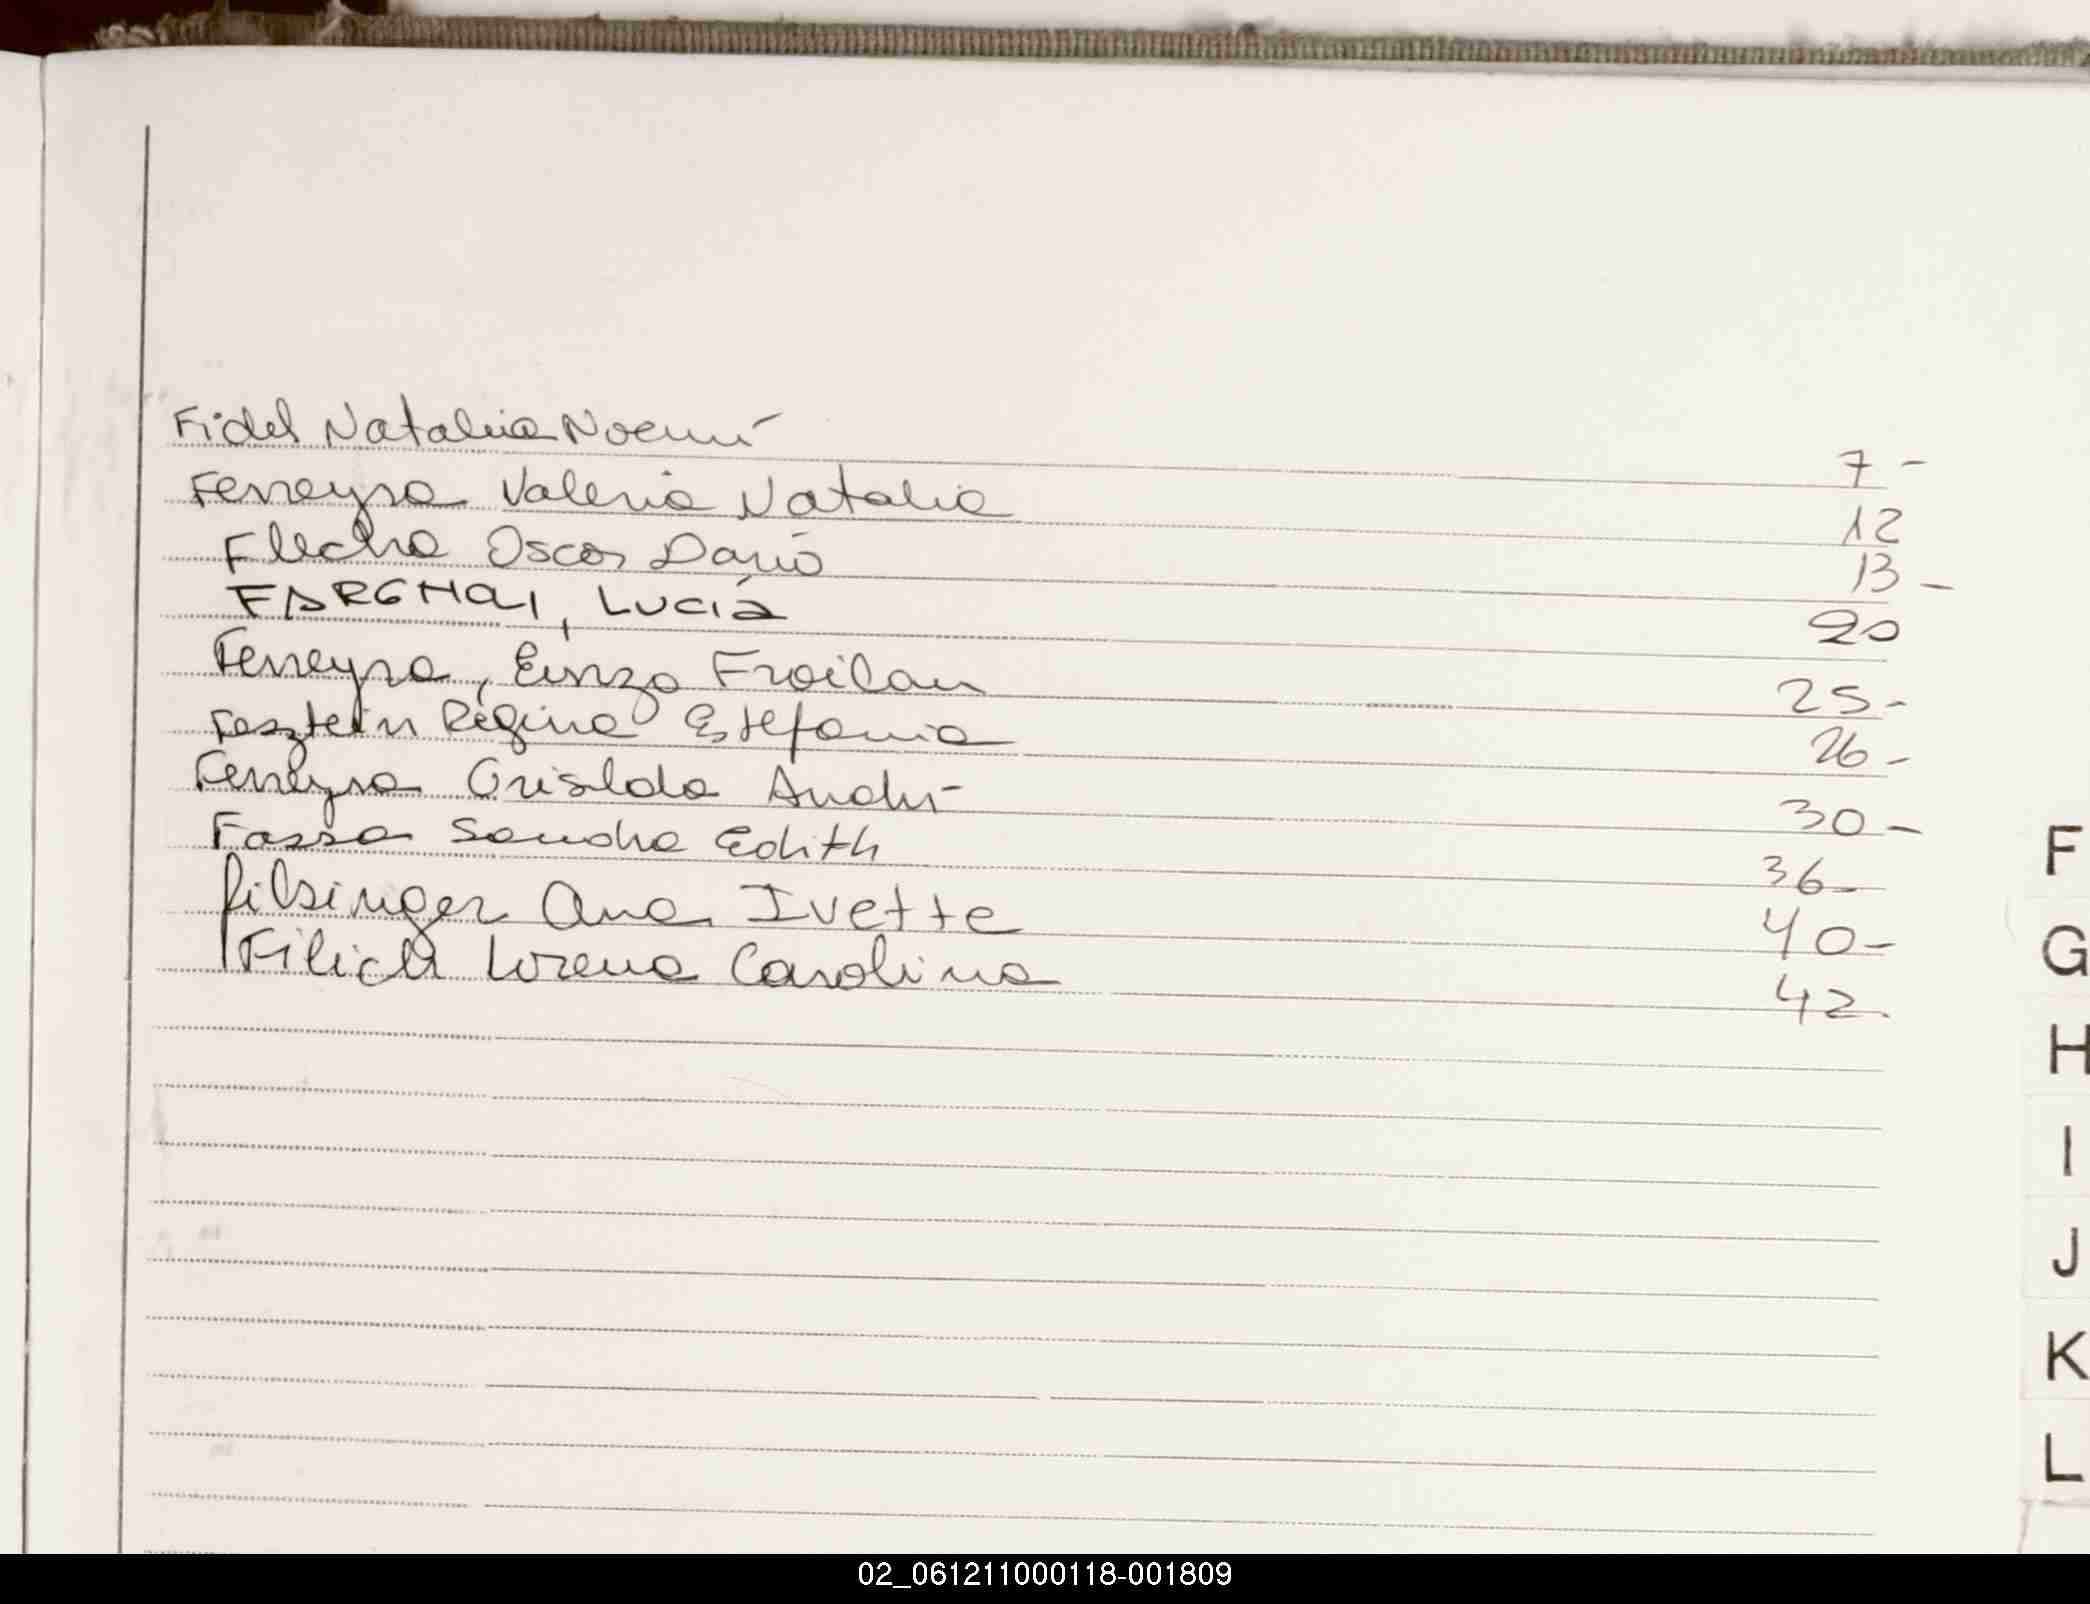 Fidel Natalia Noemí 7 -
Ferreyra Valeria Natalia 12
Flecha Oscar Darío 13 -
Lucía 20
Ferreyra, Enzo Froilan 25 -
Regina Estefania 26 -
Ferreyra Griselda 30 -
Fassa Sandra Edith 36 -
Filsinger Ana Ivette 40 -
Filich Lorena Carolina 42.
F
G
H
I
J
K
L
02_061211000118-001809